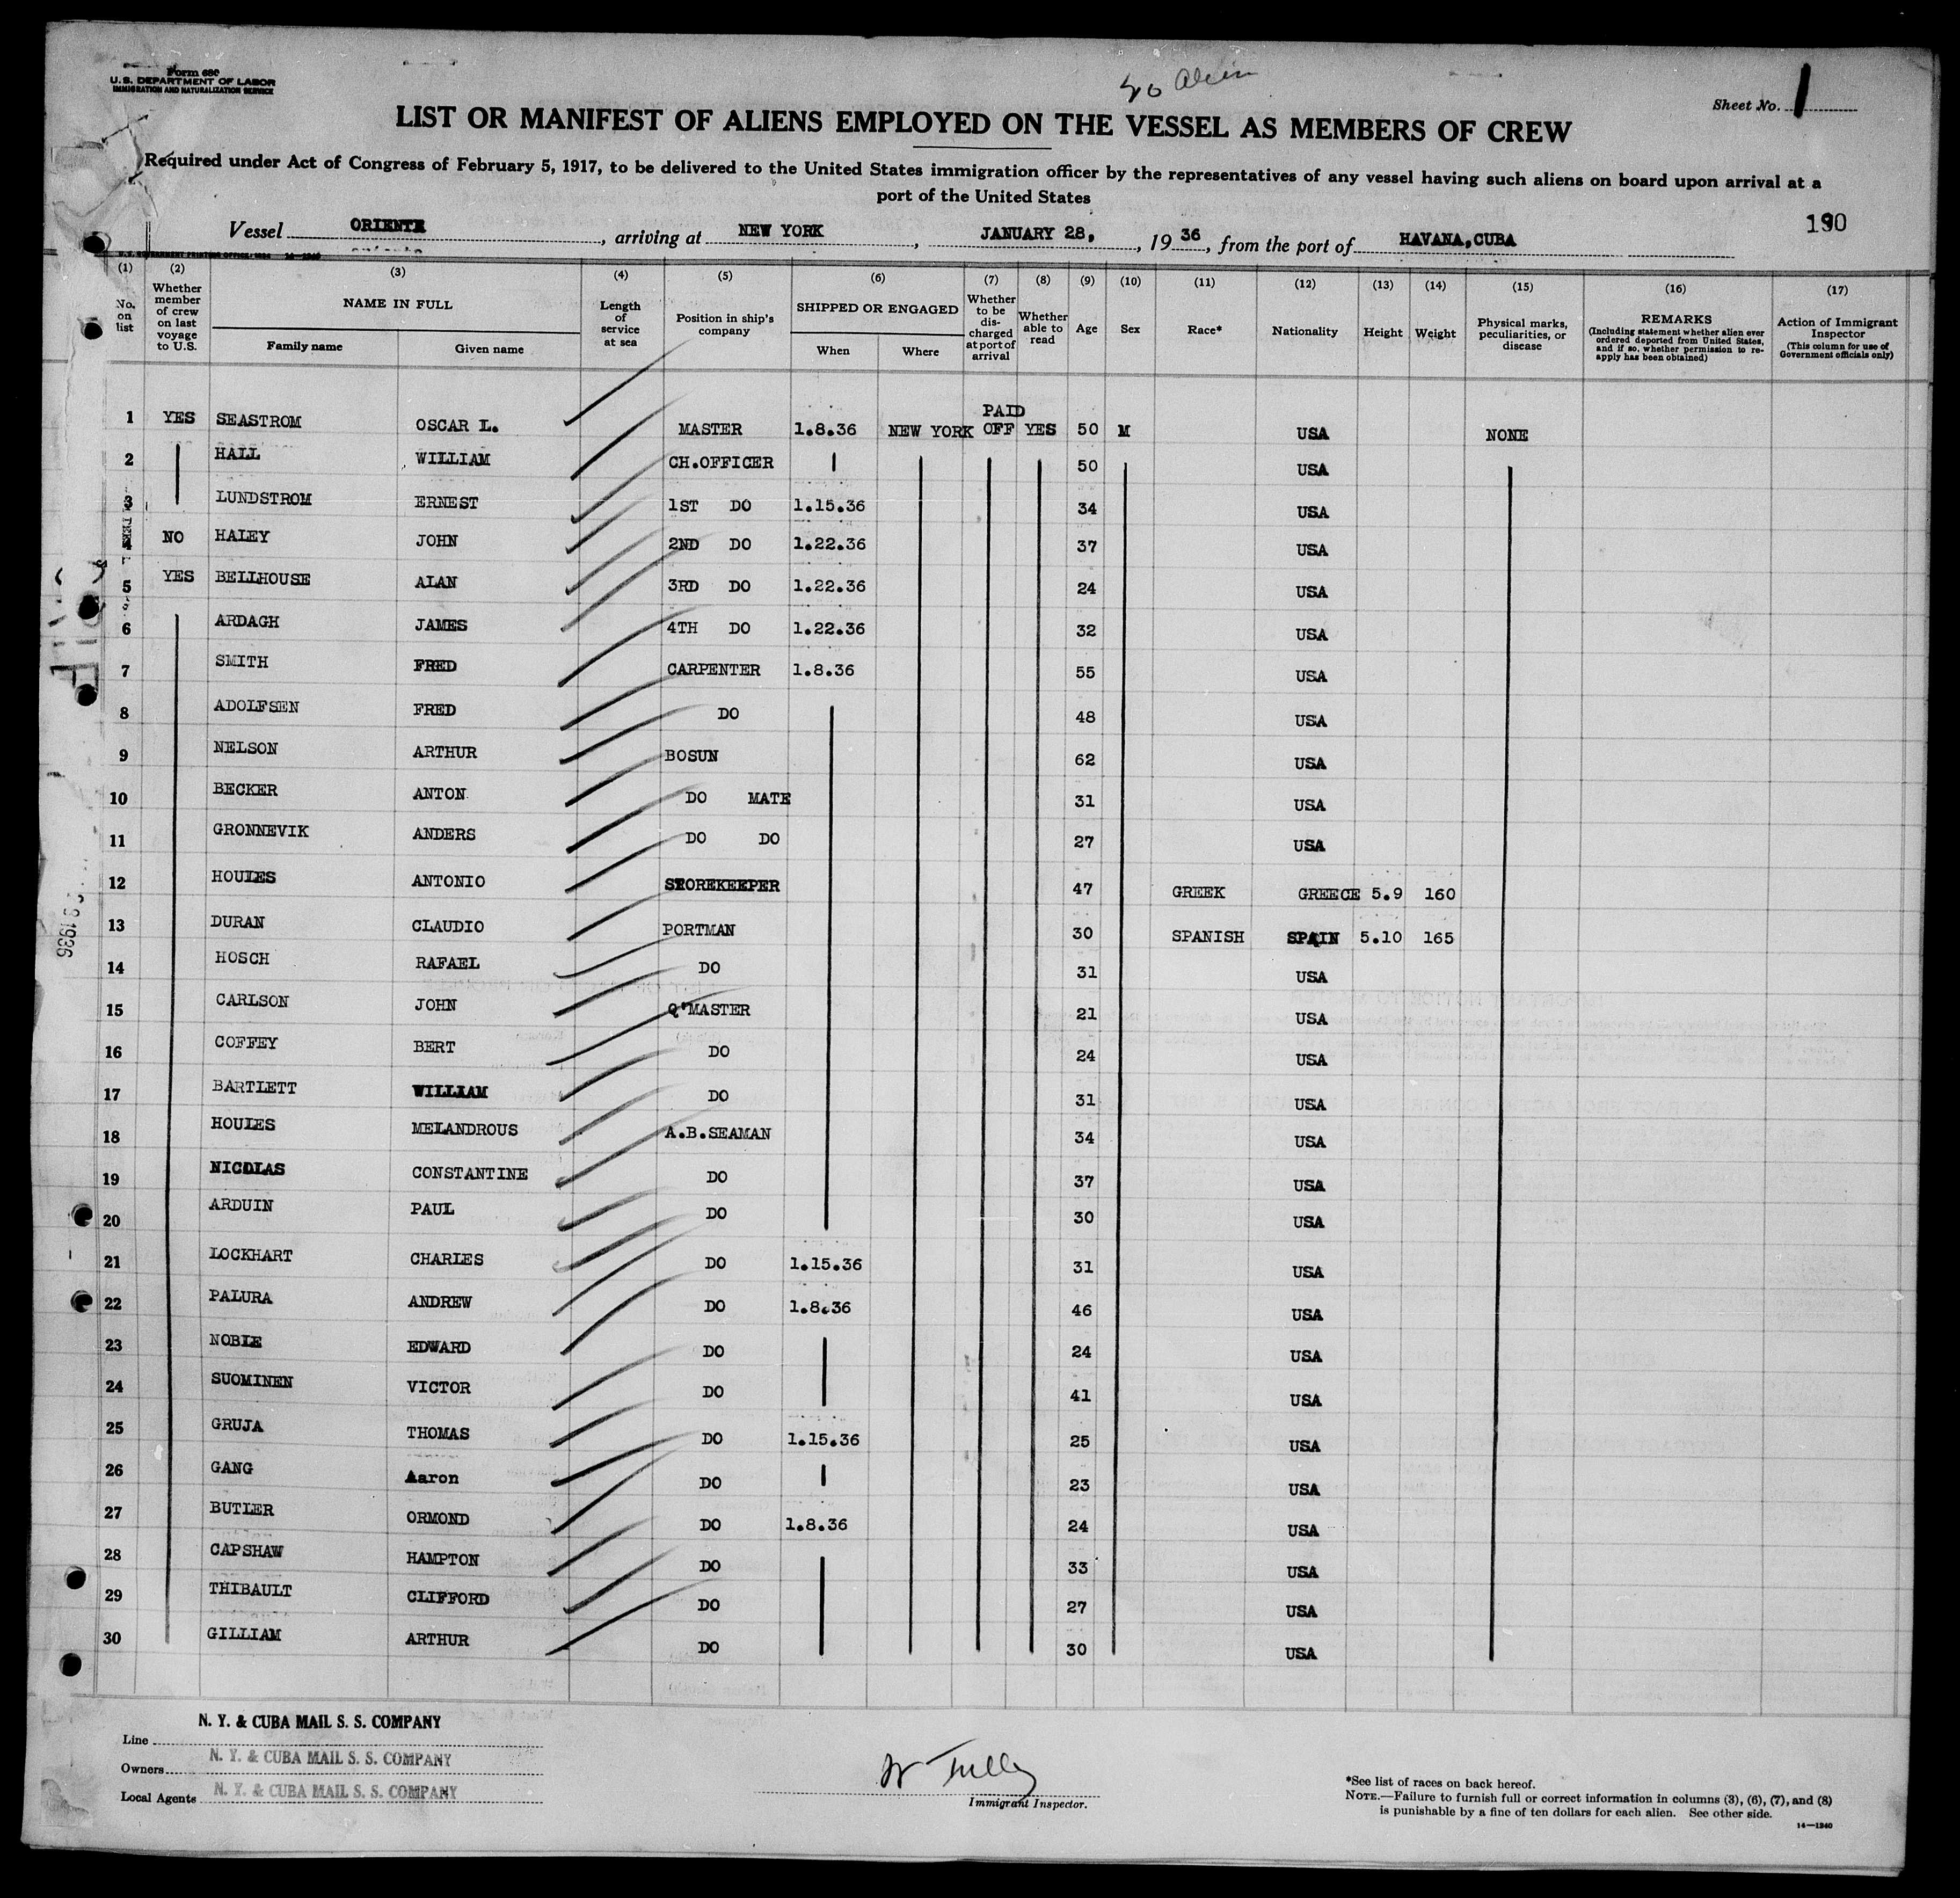 Form 680
U.S. DEPARTMENT OF LABOR
IMMIGRATION AND NATURALIZATION SERVICE
Alien
Sheet No. 1
LIST OR MANIFEST OF ALIENS EMPLOYED ON THE VESSEL AS MEMBERS OF CREW
Required under Act of Congress of February 5, 1917, to be delivered to the United States immigration officer by the representatives of any vessel having such aliens on board upon arrival at a
port of the United States
190
Vessel ORIENTE, arriving at NEW YORK, JANUARY 28, 1936, from the port of HAVANA, CUBA
(1) (2) (3) (4) (5) (6) (7) (8) (9) (10) (11) (12) (13) (14) (15) (16) (17)
No. on list
Whether member of crew on last voyage to U.S.
NAME IN FULL
Family name
Given name
Length of service at sea
Position in ship's company
SHIPPED OR ENGAGED
When
Where
Whether to be discharged at port of arrival
Whether able to read
Age
Sex
Race*
Nationality
Height
Weight
Physical marks, peculiarities, or disease
REMARKS
(Including statement whether alien ever ordered deported from United States, and if so, whether permission to re-apply has been obtained)
Action of Immigrant Inspector
(This column for use of Government officials only)
1 YES SEASTROM OSCAR L. MASTER 1.8.36 NEW YORK PAID OFF YES 50 M USA NONE
2 HALL WILLIAM CH.OFFICER 50 USA
3 LUNDSTROM ERNEST 1ST DO 1.15.36 34 USA
4 NO HALEY JOHN 2ND DO 1.22.36 37 USA
5 YES BELLHOUSE ALAN 3RD DO 1.22.36 24 USA
6 ARDAGH JAMES 4TH DO 1.22.36 32 USA
7 SMITH FRED CARPENTER 1.8.36 55 USA
8 ADOLFSEN FRED DO 48 USA
9 NELSON ARTHUR BOSUN 62 USA
10 BECKER ANTON DO MATE 31 USA
11 GRONNEVIK ANDERS DO DO 27 USA
12 HOULES ANTONIO STOREKEEPER 47 GREEK GREECE 5.9 160
13 DURAN CLAUDIO PORTMAN 30 SPANISH SPAIN 5.10 165
14 HOSCH RAFAEL DO 31 USA
15 CARLSON JOHN Q'MASTER 21 USA
16 COFFEY BERT DO 24 USA
17 BARTLETT WILLIAM DO 31 USA
18 HOULES MELANDROUS A.B.SEAMAN 34 USA
19 NICOLAS CONSTANTINE DO 37 USA
20 ARDUIN PAUL DO 30 USA
21 LOCKHART CHARLES DO 1.15.36 31 USA
22 PALURA ANDREW DO 1.8.36 46 USA
23 NOBLE EDWARD DO 24 USA
24 SUOMINEN VICTOR DO 41 USA
25 GRUJA THOMAS DO 1.15.36 25 USA
26 GANG Aaron DO 23 USA
27 BUTLER ORMOND DO 1.8.36 24 USA
28 CAPSHAW HAMPTON DO 33 USA
29 THIBAULT CLIFFORD DO 27 USA
30 GILLIAM ARTHUR DO 30 USA
Line N. Y. & CUBA MAIL S. S. COMPANY
Owners N. Y. & CUBA MAIL S. S. COMPANY
Local Agents N. Y. & CUBA MAIL S. S. COMPANY
W Tully
Immigrant Inspector.
*See list of races on back hereof.
NOTE.—Failure to furnish full or correct information in columns (3), (6), (7), and (8)
is punishable by a fine of ten dollars for each alien. See other side.
14—1240